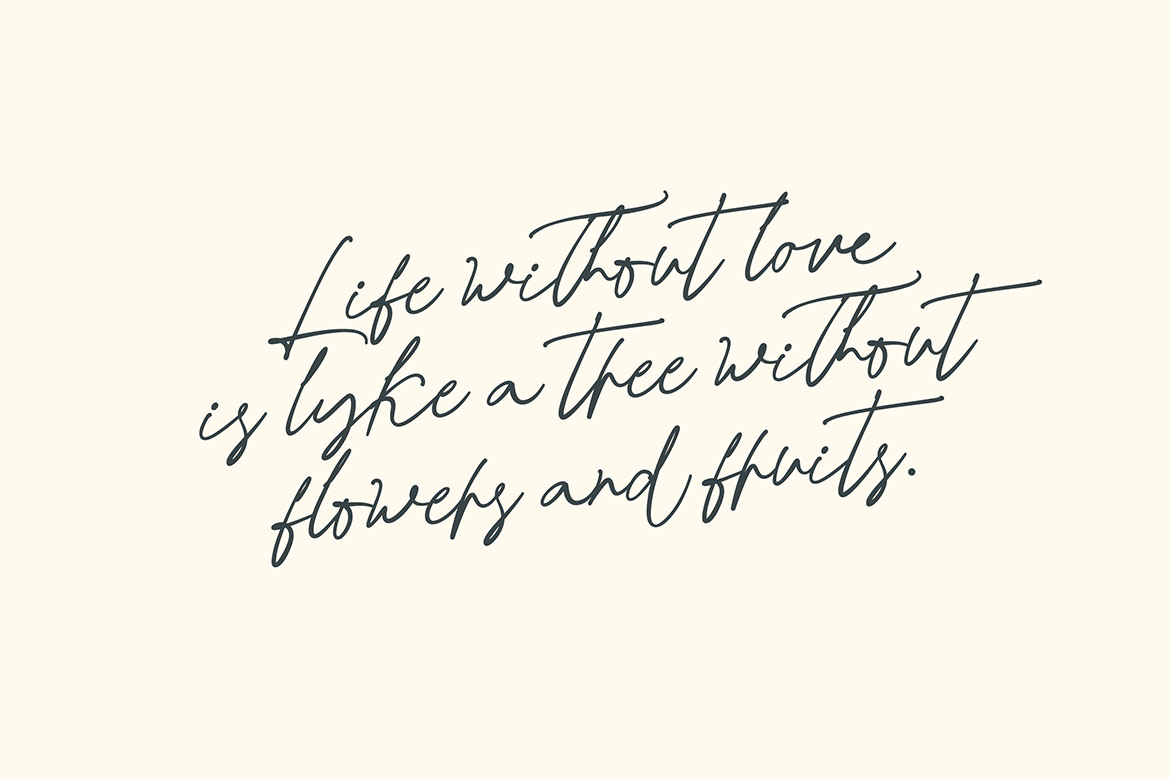 Life without love
is lyke a tree without
flowers and fruits.